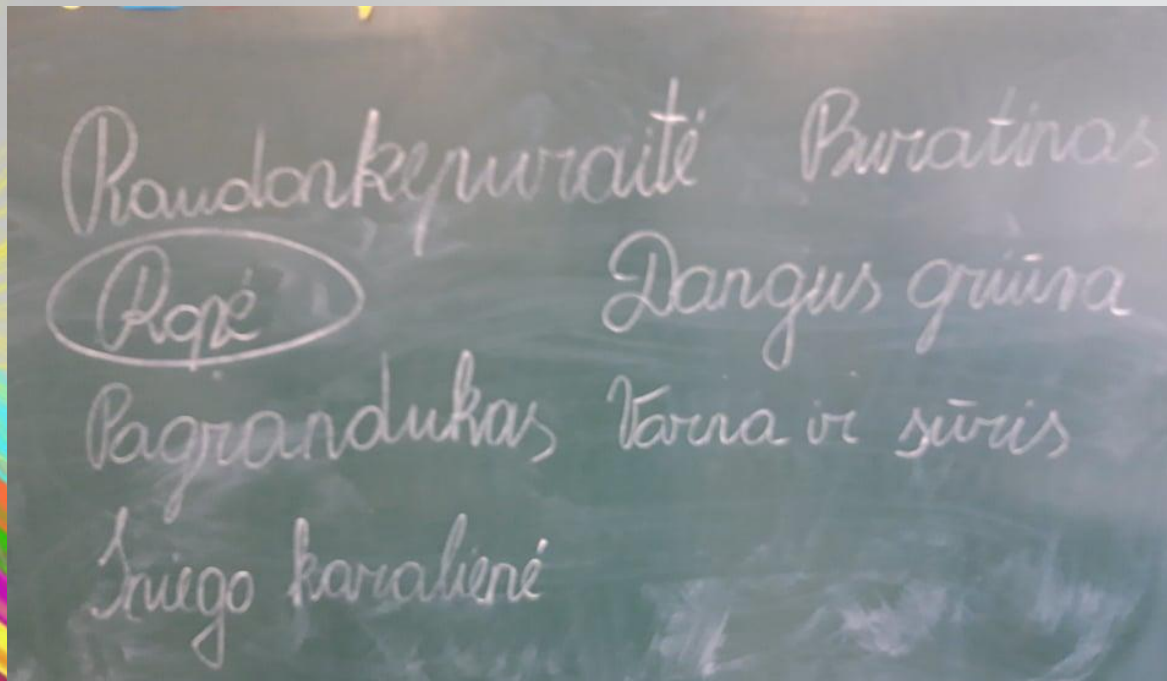 Raudonkepuraitė Buratinas
Ropė Dangus griūva
Pagrandukas Varna ir sūris
Sniego karalienė